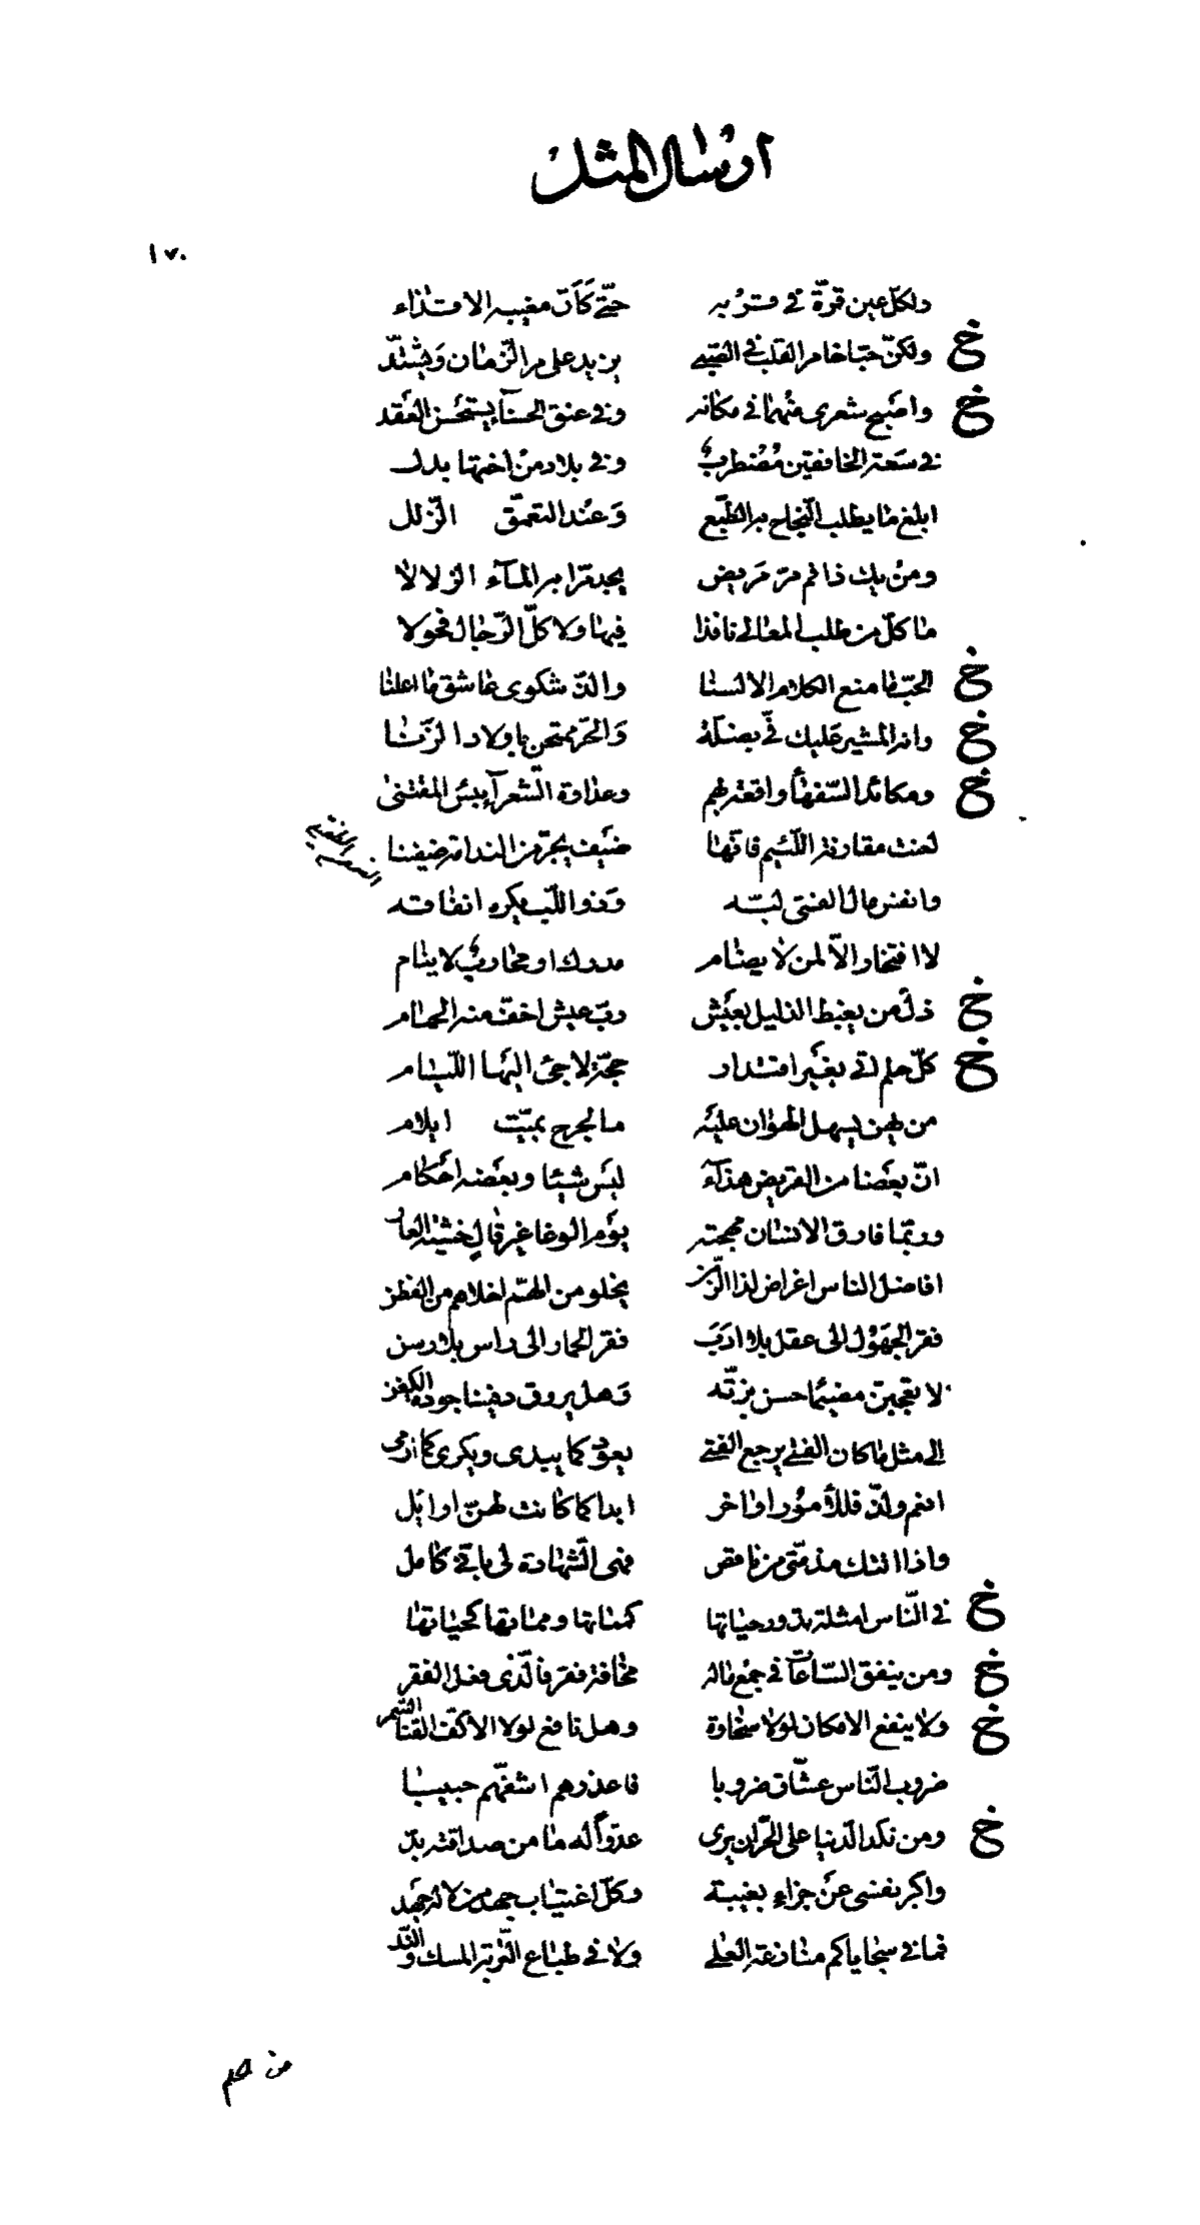 ارسال المثل
١٧٠
ولكلّ عين قرّة فى قربه حتّى كَاَنّ مغيبه الاقذاء
خ ولكنّ حبّا خامر القلب فى الصّبى يزيد على مر الزّمان وَيشْتدّ
خ واصَبح شعرى منهما فى مكانه وفى عنق الحسنآء يستحْسَن العقد
فى سَعة الخافقين مُضطربٌ وفى بلاد من اختها بدل
ابلغ ما يطلب النّجاح به الطّبع وَعند التعمّق الزّلل
ومن يك ذا فم مرّ مَريض يجد مرّا به المآء الزلالا
ما كلّ من طلب المعالى نافذا فيها ولا كلّ الرّجال فحولا
خ الحبّ ما منع الكلام الالسنا والذّ شكوى عاشق ما اعلنا
خ وانه المشير عليك فىّ بضلّة وَالحّر ممتحن باولاد الزّنا
خ ومكائد السّفهآء واقعة بهم وعداوة الشّعرآء بئس المقتنى
لعنت مقارنة اللّئيم فانّها ضَيف يجرّ من الندامة ضيفنا
وانفس مال الفتى لبّه وَذو اللّب يكره انفاقه
لا افتخار الاّ لمن لا يضام مدرك او محاربٌ لا ينام
خ ذلّ من يغبط الذليل بعَيْش ربّ عيش اخفّ منه الحمام
خ كلّ حلم اتى بغَير اقتدار حجّة لاجئ اليها اللّئام
من يهن يسهل الهوان عليَه ما لجرح بميّت ايلام
انّ بعَضا من القريض هذآء ليَس شيئا وبعَضه احَكام
وربّما فارق الانسان مهجته يوَم الوغا غير قالٍ خشية العار
افاضل الناس اغراض لذا الزّمن يخلو من الهمّ اخلاهم من الفطن
فقر الجهَوُل الى عقل بلا ادَب فقر الحمار الى راس بلا رسن
لا يعجبنّ مضيمًا حسن بزّته وَهل يروق دفينا جودة الكفن
الى مثل ما كان الفتى يرجع الفتى يعود كما يبدى ويكرى كما ارمى
انعم ولذّ فللأمور اواخر ابدا كما كانت لهنّ اوائل
واذا اتتك مذمّتى من ناقص فهى الشّهادة لى بانّى كامل
خ فى النّاس امثلة تدور حياتها كمماتها ومماتها كحياتها
خ ومن ينفق السّاعات فى جمْع ماله مخافة فقر فالّذى فعل الفقر
خ ولا ينفع الامكان لولا سخاوة وهل نافع لولا الاكفّ القنا السّمر
ضروب النّاس عشّاق ضروبا فاعذرهم اشفّهم حبيبا
خ ومن نكد الدّنيا على الحّر ان يرى عدوّاً له ما من صداقته بدّ
واكبر نفسى عنَ جزاءٍ بغيبة وكلّ اغتياب جهد من لا له جهَد
فما فى سجاياكم منازعة العلى ولا فى طباع التّربة المسك والنّدّ